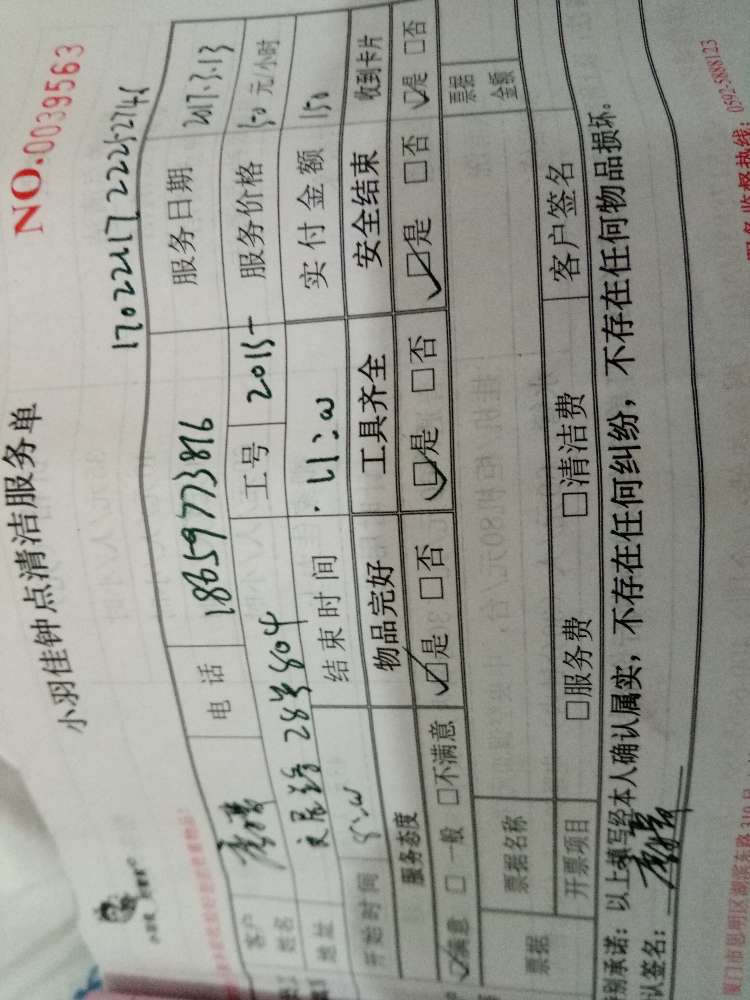 小羽佳钟点清洁服务单
NO.0039563
客户姓名 电话 18659773816 服务日期 2017.3.13
地址 28号804 工号 服务价格 50元/小时
开始时间 8:00 结束时间 11:00 实付金额 150
服务态度 物品完好 工具齐全 安全结束 收到卡片
☑满意 □一般 □不满意 ☑是 □否 ☑是 □否 ☑是 □否 ☑是 □否
票据 票据名称 票据金额
开票项目 □服务费 □清洁费 客户签名
别承诺：以上填写经本人确认属实，不存在任何纠纷，不存在任何物品损坏。
认签名：
厦门市思明区湖滨东路319号 服务监督热线：0592-5888123